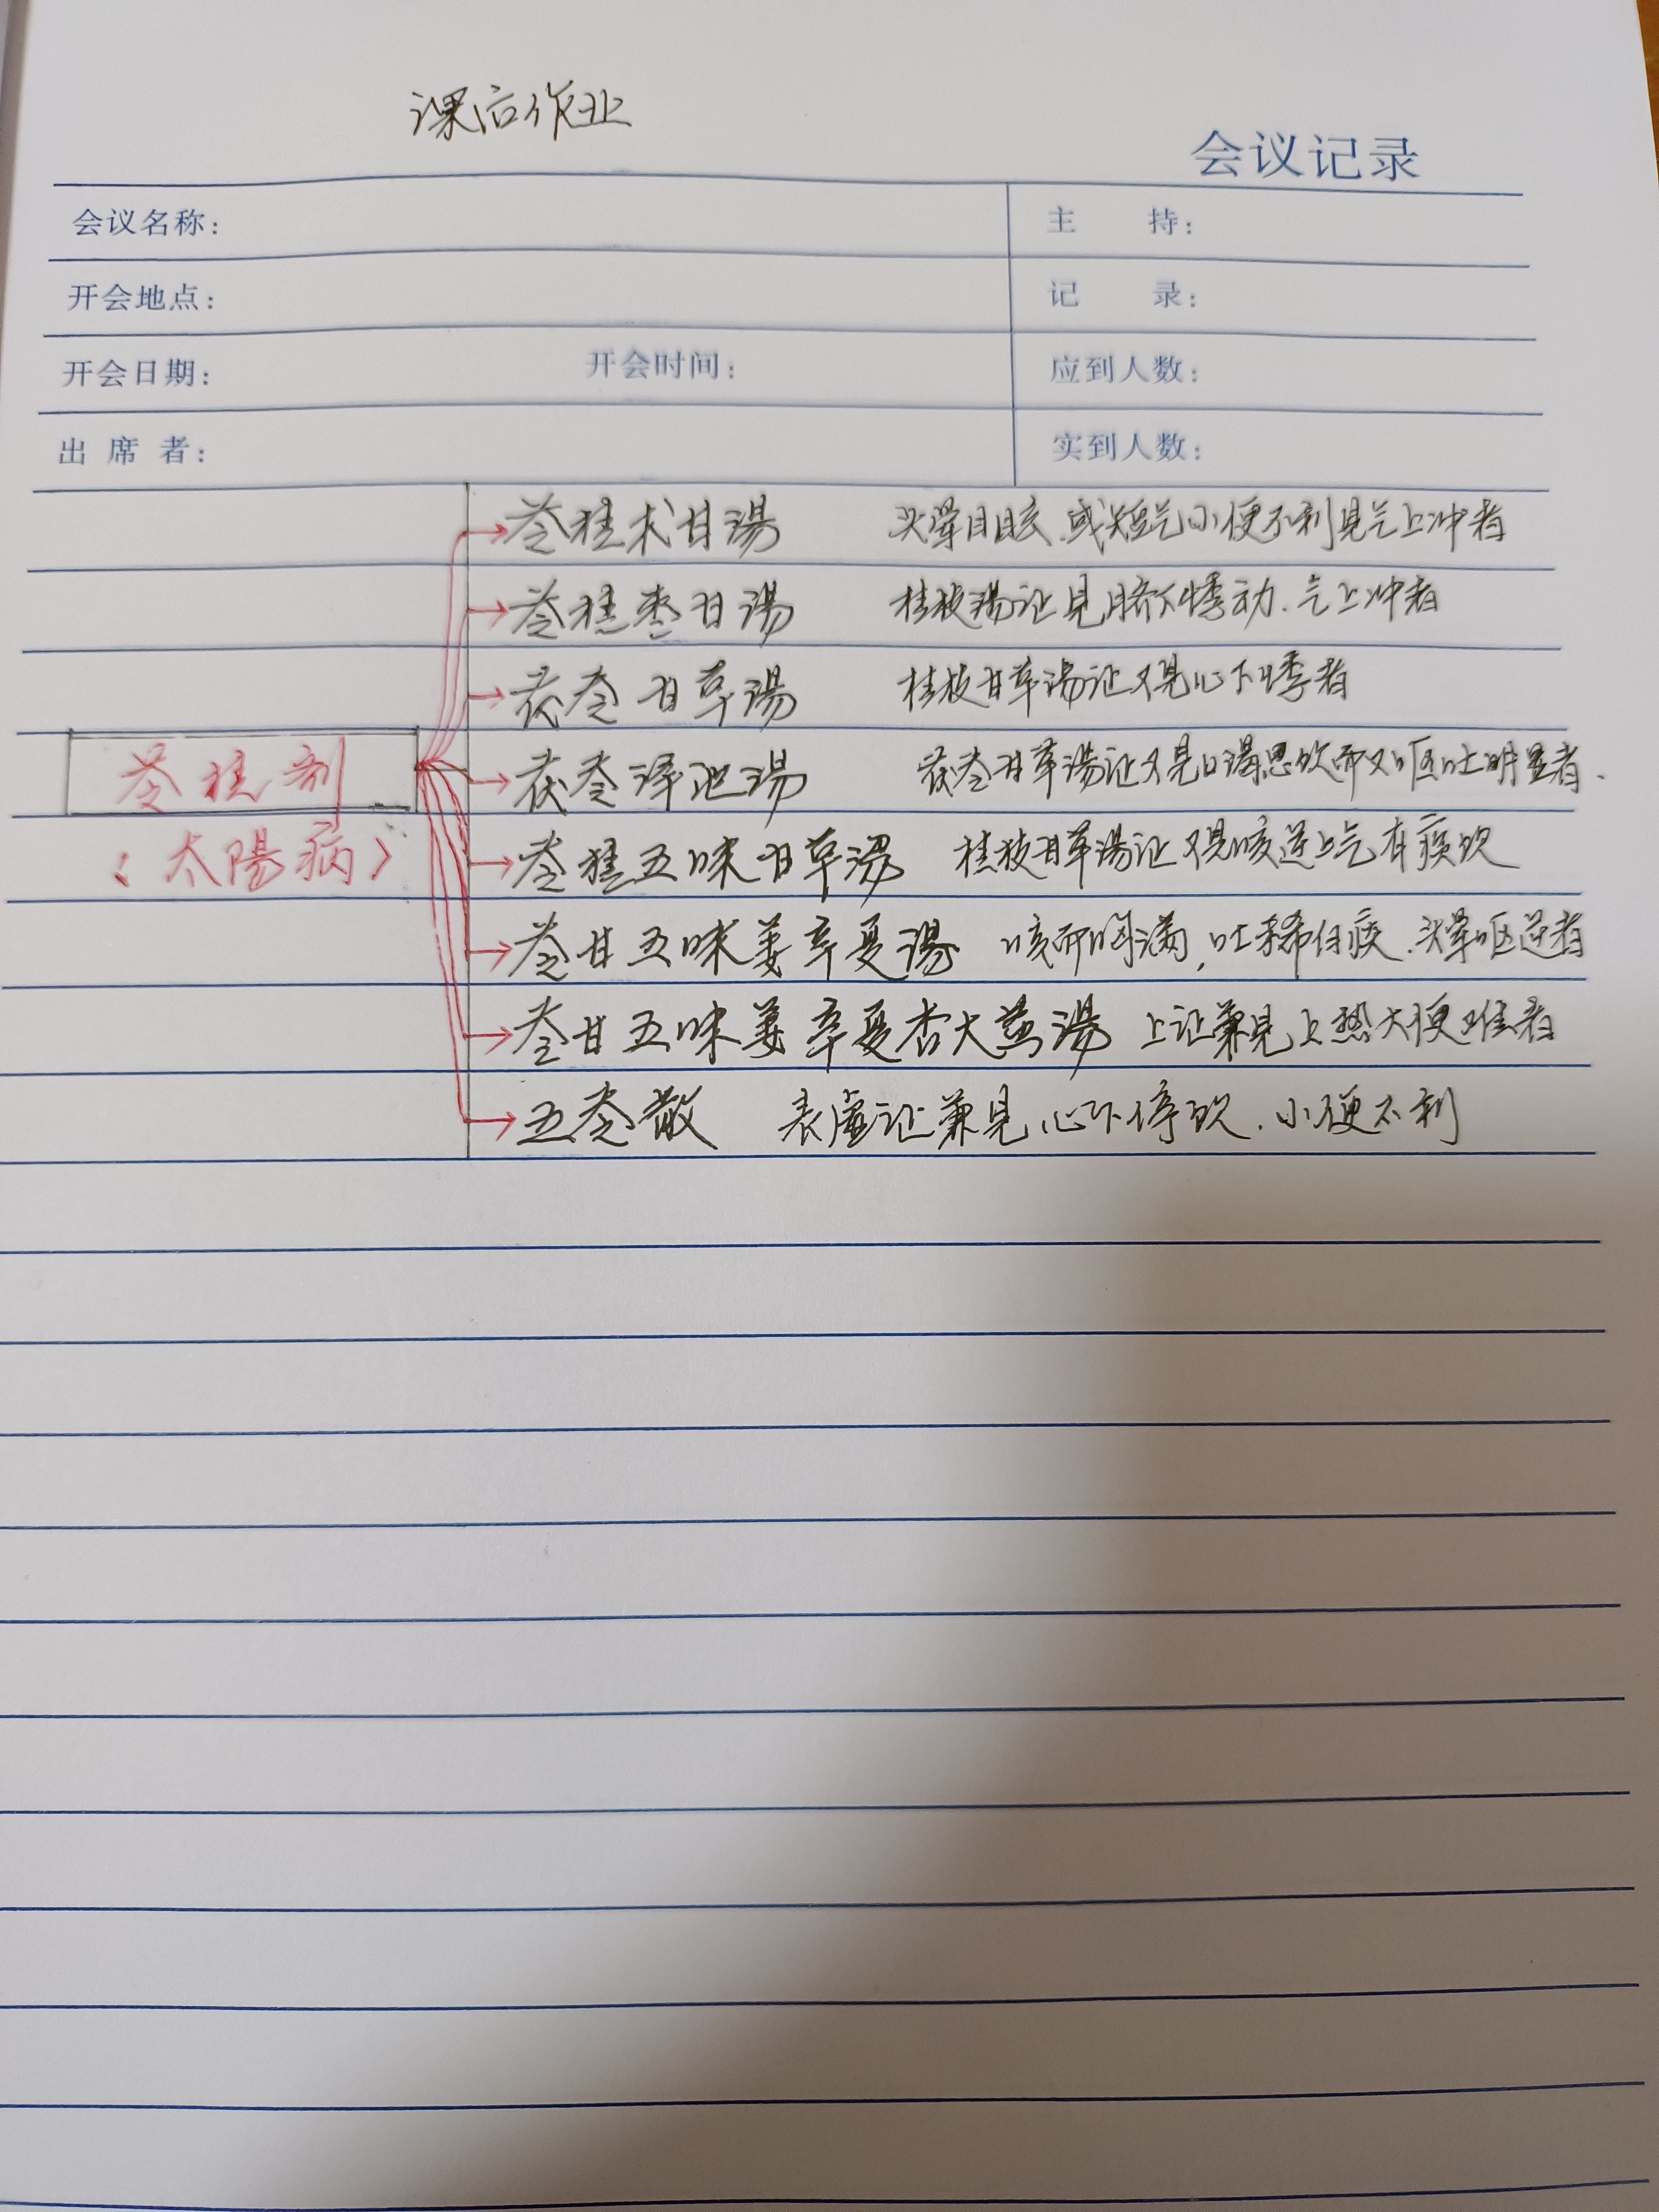 课后作业
会议记录
会议名称：
主 持：
开会地点：
记 录：
开会日期： 开会时间：
应到人数：
出 席 者：
实到人数：
苓桂术甘湯 头晕目眩、或短气小便不利見气上冲者
苓桂枣甘湯 桂枝湯证見脐下悸动、气上冲者
茯苓甘草湯 桂枝甘草湯证又見心下悸者
苓桂剂
茯苓泽泄湯 茯苓甘草湯证又見口渴思饮而又呕吐明显者、
（太陽病）
苓桂五味甘草湯 桂枝甘草湯证又見咳逆上气有痰饮
苓甘五味姜辛夏湯 咳而胸满，吐稀白痰、头晕呕逆者
苓甘五味姜辛夏杏大黄湯 上证兼見上热大便难者
五苓散 表虚证兼見心下停饮、小便不利